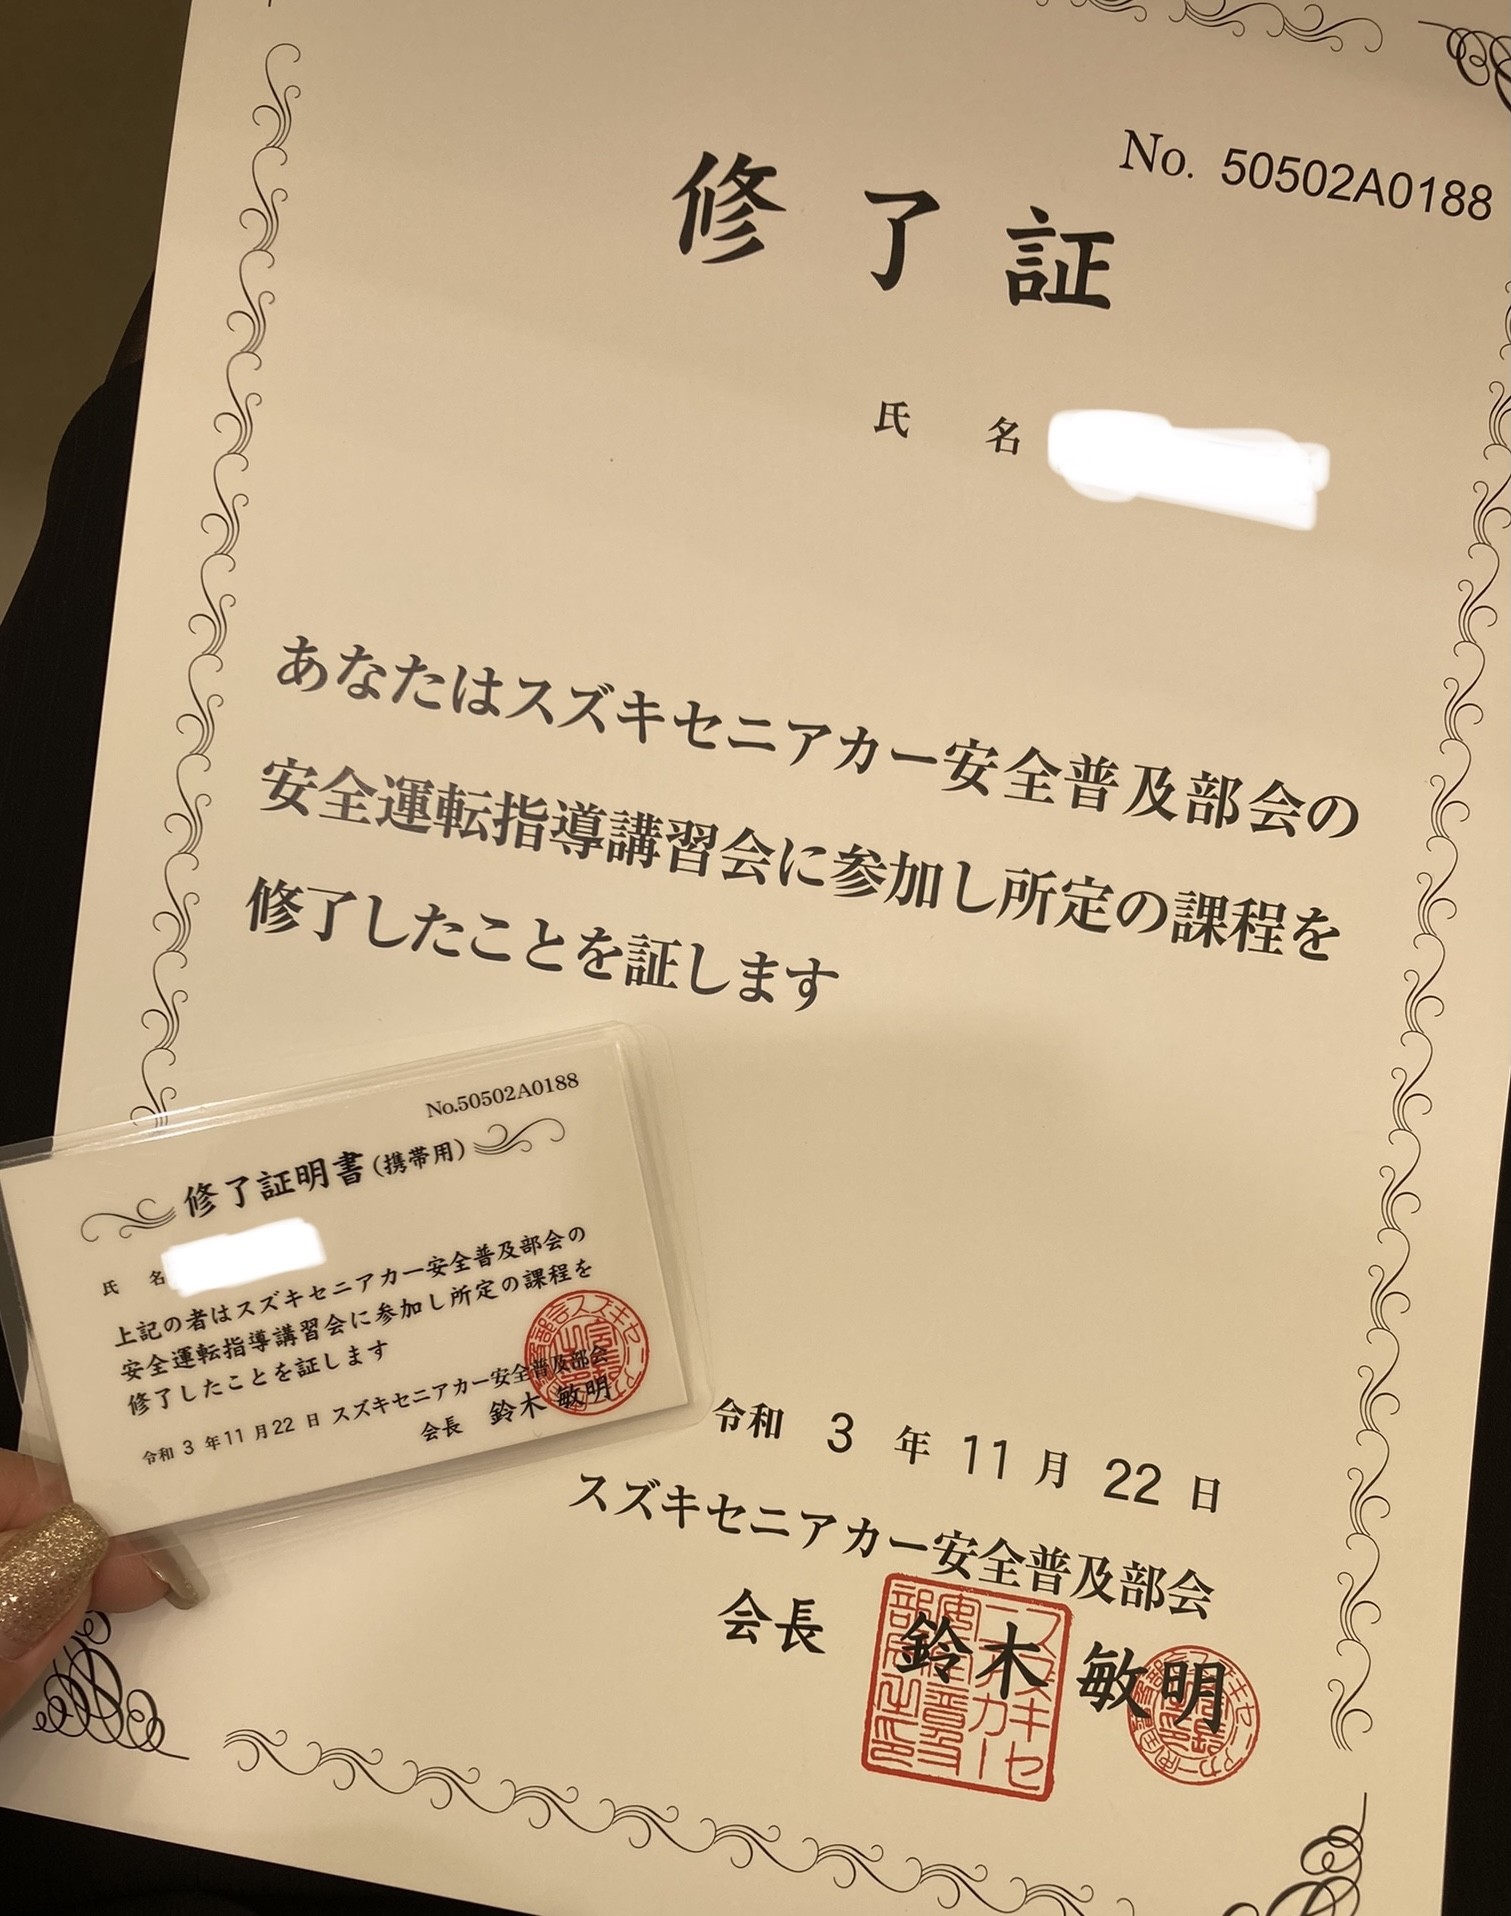 No. 50502A0188
修了証
氏 名
あなたはスズキセニアカー安全普及部会の
安全運転指導講習会に参加し所定の課程を
修了したことを証します
令和 3 年 11 月 22 日
スズキセニアカー安全普及部会
会長 鈴木 敏明
No.50502A0188
修了証明書(携帯用)
氏 名
上記の者はスズキセニアカー安全普及部会の
安全運転指導講習会に参加し所定の課程を
修了したことを証します
令和 3 年 11 月 22 日 スズキセニアカー安全普及部会
会長 鈴木 敏明